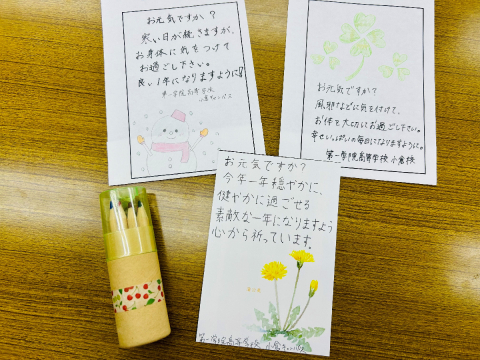 お元気ですか?
寒い日が続きますが、
お身体に気をつけて
お過ごし下さい。
良い1年になりますように!!
第一学院高等学校
お元気ですか?
風邪などに気を付けて、
お体を大切にお過ごし下さい。
幸せいっぱいの毎日になりますように。
第一学院高等学校 小倉校
お元気ですか?
今年一年穏やかに、
健やかに過ごせる
素敵な一年になりますよう
心から祈っています。
第一学院高等学校 小倉キャンパス